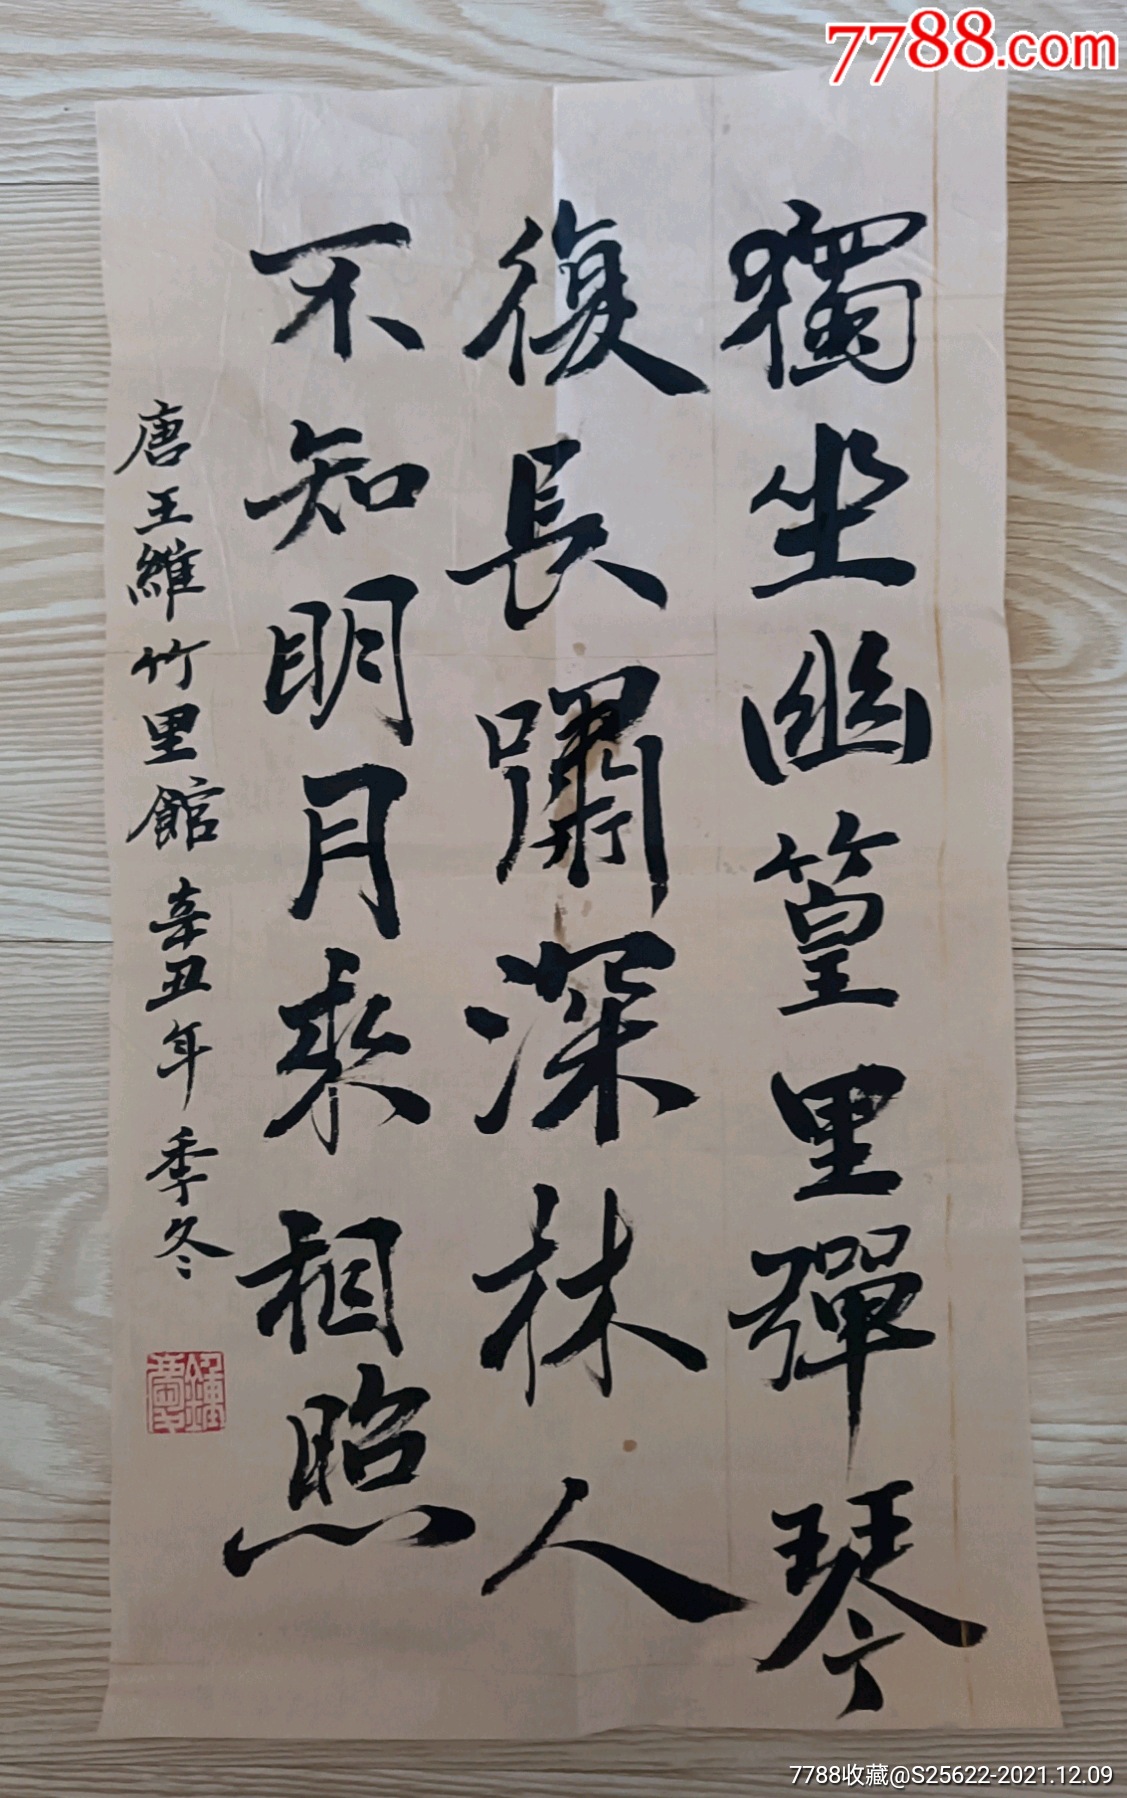 7788.com
獨坐幽篁里彈琴
復長嘯深林人
不知明月来相照
唐王維竹里館 辛丑年 季冬
7788收藏@S25622-2021.12.09